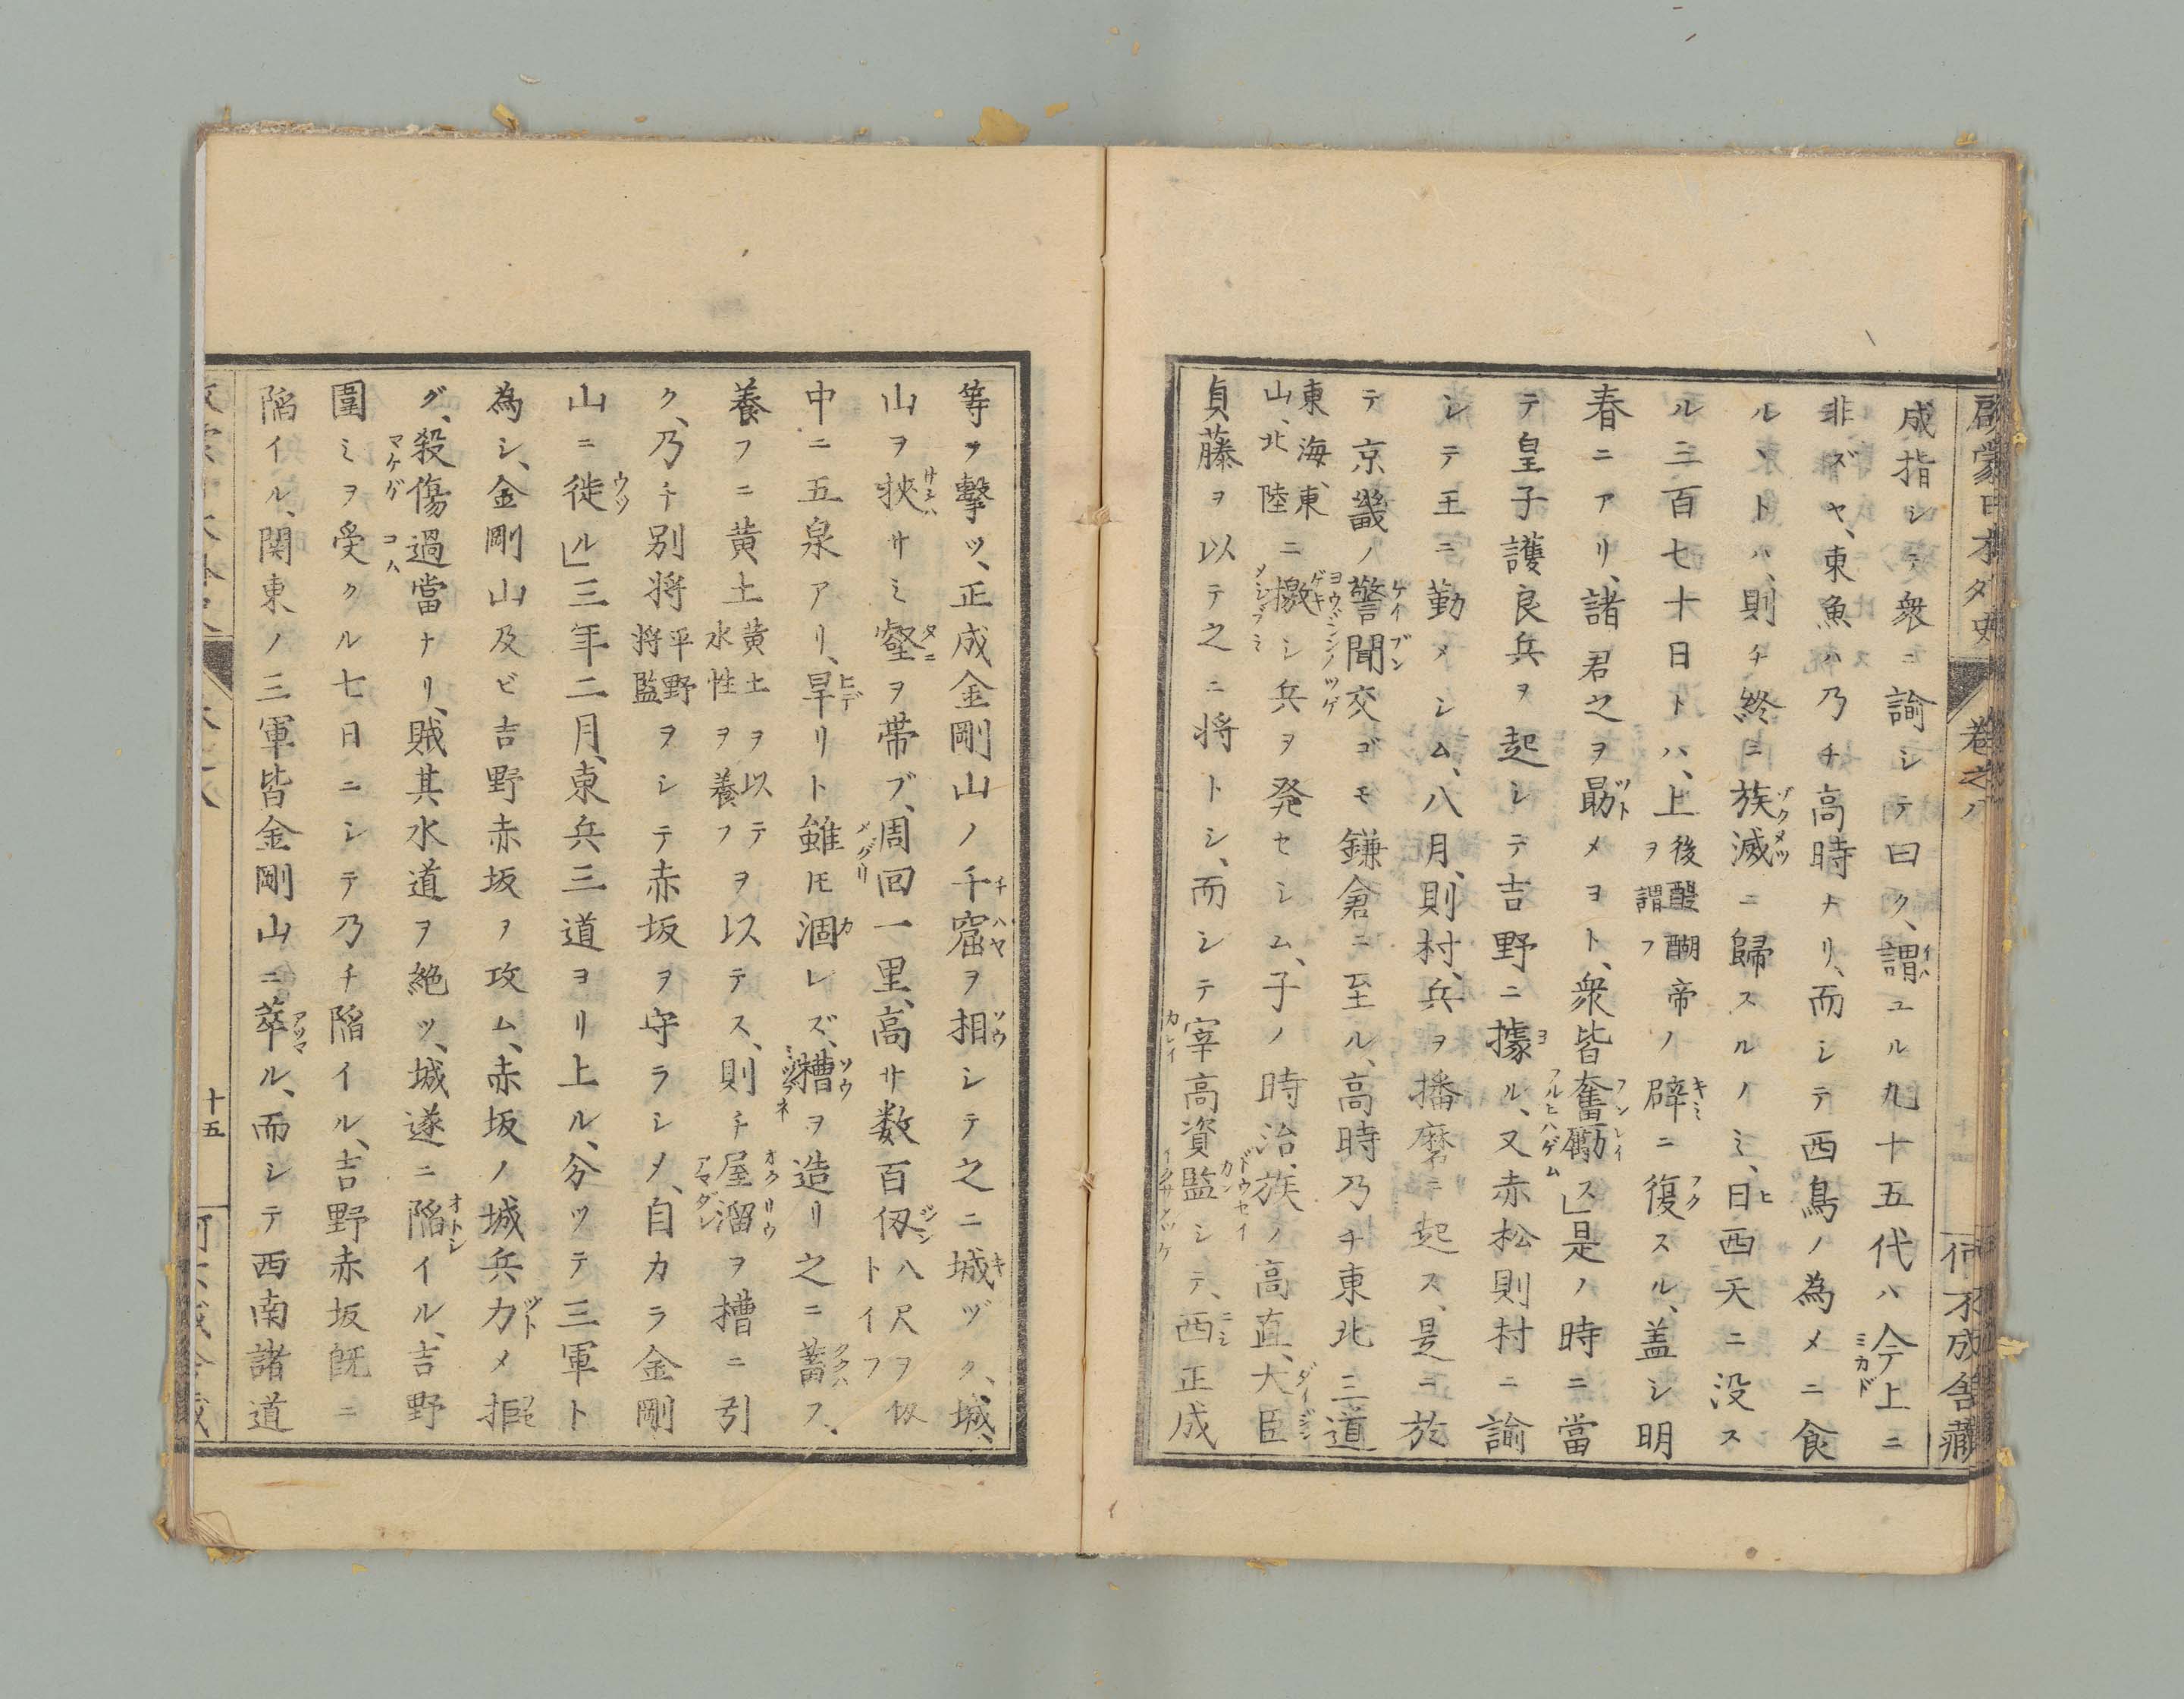 啓蒙日本外史
巻之八
何不成舎蔵
成指シテ衆ニ諭シテ曰ク、謂ユル九十五代ハ今上ニ
非ズヤ、東魚ハ乃チ高時ナリ、而シテ西鳥ノ為メニ食
ル、トハ、則チ終ニ族滅ニ歸スルノミ、日西天ニ没ス
ル三百七十日トハ、上後醍醐帝ヲ謂フノ辟ニ復スル、盖シ明
春ニアリ、諸君之ヲ勗メヨト、衆皆奮勵ス」是ノ時ニ當
テ皇子護良兵ヲ起シテ吉野ニ據ル、又赤松則村ニ諭
シテ王ニ勤メシム、八月、則村、兵ヲ播磨ニ起ス、是ニ於
テ京畿ノ警聞交ゴモ鎌倉ニ至ル、高時乃チ東北三道
東海、東山、北陸ニ檄シ兵ヲ発セシム、子ノ時治、族ノ高直、大臣
貞藤ヲ以テ之ニ将トシ、而シテ宰高資監シテ、西正成
等ヲ擊ツ、正成金剛山ノ千窟ヲ相シテ之ニ城ヅク、城、
山ヲ挾サミ壑ヲ帯ブ、周回一里、高サ数百仭八尺ヲ仭トイフ
中ニ五泉アリ、旱リト雖𪜈涸レズ、槽ヲ造リ之ニ蓄フ、
養フニ黄土黄土ヲ以テ水性ヲ養フヲ以テス、則チ屋溜ヲ槽ニ引
ク、乃チ別将平野将監ヲシテ赤坂ヲ守ラシメ、自カラ金剛
山ニ徙ル」三年二月、東兵三道ヨリ上ル、分ツテ三軍ト
為シ、金剛山及ビ吉野赤坂ヲ攻ム、赤坂ノ城兵力メ拒
グ、殺傷過當ナリ、賊其水道ヲ絶ツ、城遂ニ陷イル、吉野
圍ミヲ受クル七日ニシテ乃チ陷イル、吉野赤坂既ニ
陷イル、関東ノ三軍皆金剛山ニ萃ル、而シテ西南諸道
十五